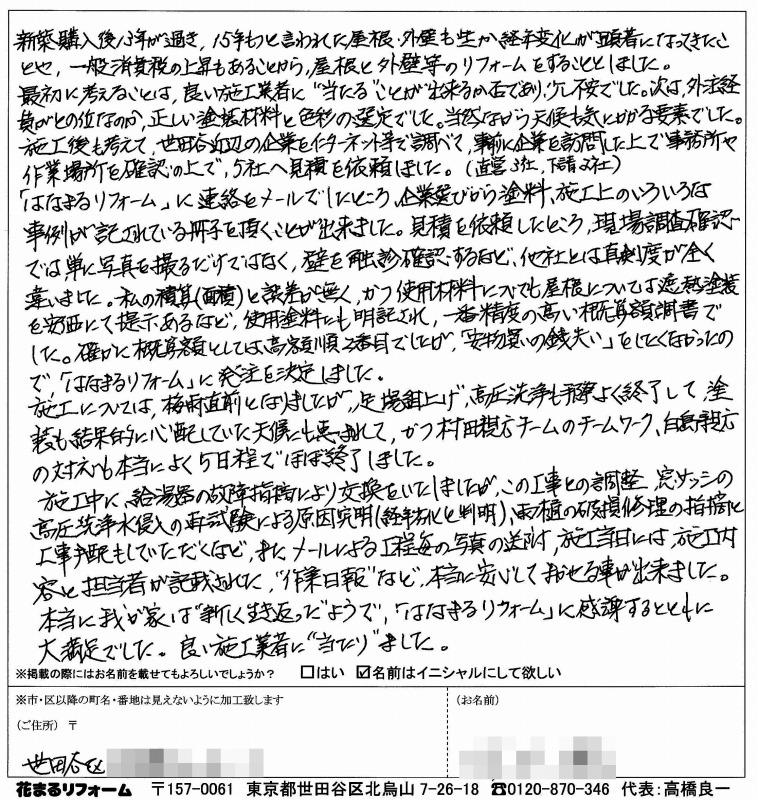 新築購入後13年が過ぎ、15年もつと言われた屋根・外壁も生か経年変化が顕著になってきたこ
とや、一般消費税の上昇もあることから、屋根と外壁等のリフォームをすることとしました。
最初に考えることは、良い施工業者に"当たる"ことが出来るか否であり、少し不安でした。次は、外装経
費がどの位なのか、正しい塗装材料と色彩の選定でした。当然ながら天候も気にかかる要素でした。
施工後も考えて、世田谷近辺の企業をインターネット等で調べて、事前に企業を訪問した上で事務所や
作業場所を確認の上で、5社へ見積を依頼しました。(直営3社、下請2社)
「はなまるリフォーム」に連絡をメールでしたところ、企業選びから塗料、施工上のいろいろな
事例が記されている冊子を頂くことが出来ました。見積を依頼したところ、現場調査確認
では単に写真を撮るだけではなく、壁を触診確認するなど、他社とは真剣度が全く
違いました。私の積算(面積)と誤差が無く、かつ使用材料についても屋根については遮熱塗装
を安価にて提示あるなど、使用塗料にも明記され、一番精度の高い概算額調書で
した。確かに概算額としては、高額順2番目でしたが、"安物買いの銭失い"をしたくなかったの
で、「はなまるリフォーム」に発注を決定しました。
施工については、梅雨直前となりましたが、足場組上げ、高圧洗浄も手際よく終了して、塗
装も結果的に心配していた天候にも恵まれて、かつ村田親方チームのチームワーク、白鳥親方
の対応も本当によく5日程でほぼ終了しました。
施工中に、給湯器の故障指摘により交換をいたしましたが、この工事との調整、窓サッシの
高圧洗浄水侵入の再試験による原因究明(経年劣化と判明)、雨樋の破損修理の指摘と
工事手配もしていただくなど、またメールによる工程毎の写真の送付、施工当日には、施工内
容と担当者が記載された、"作業日報"など、本当に安心しておまかせる事が出来ました。
本当に我が家は"新しく生き返った"ようで、「はなまるリフォーム」に感謝するとともに
大満足でした。良い施工業者に"当たり"ました。
※掲載の際にはお名前を載せてもよろしいでしょうか? □はい ☑名前はイニシャルにして欲しい
※市・区以降の町名・番地は見えないように加工致します
(お名前)
(ご住所) 〒
世田谷区
花まるリフォーム 〒157-0061 東京都世田谷区北烏山 7-26-18 ☎0120-870-346 代表:高橋良一